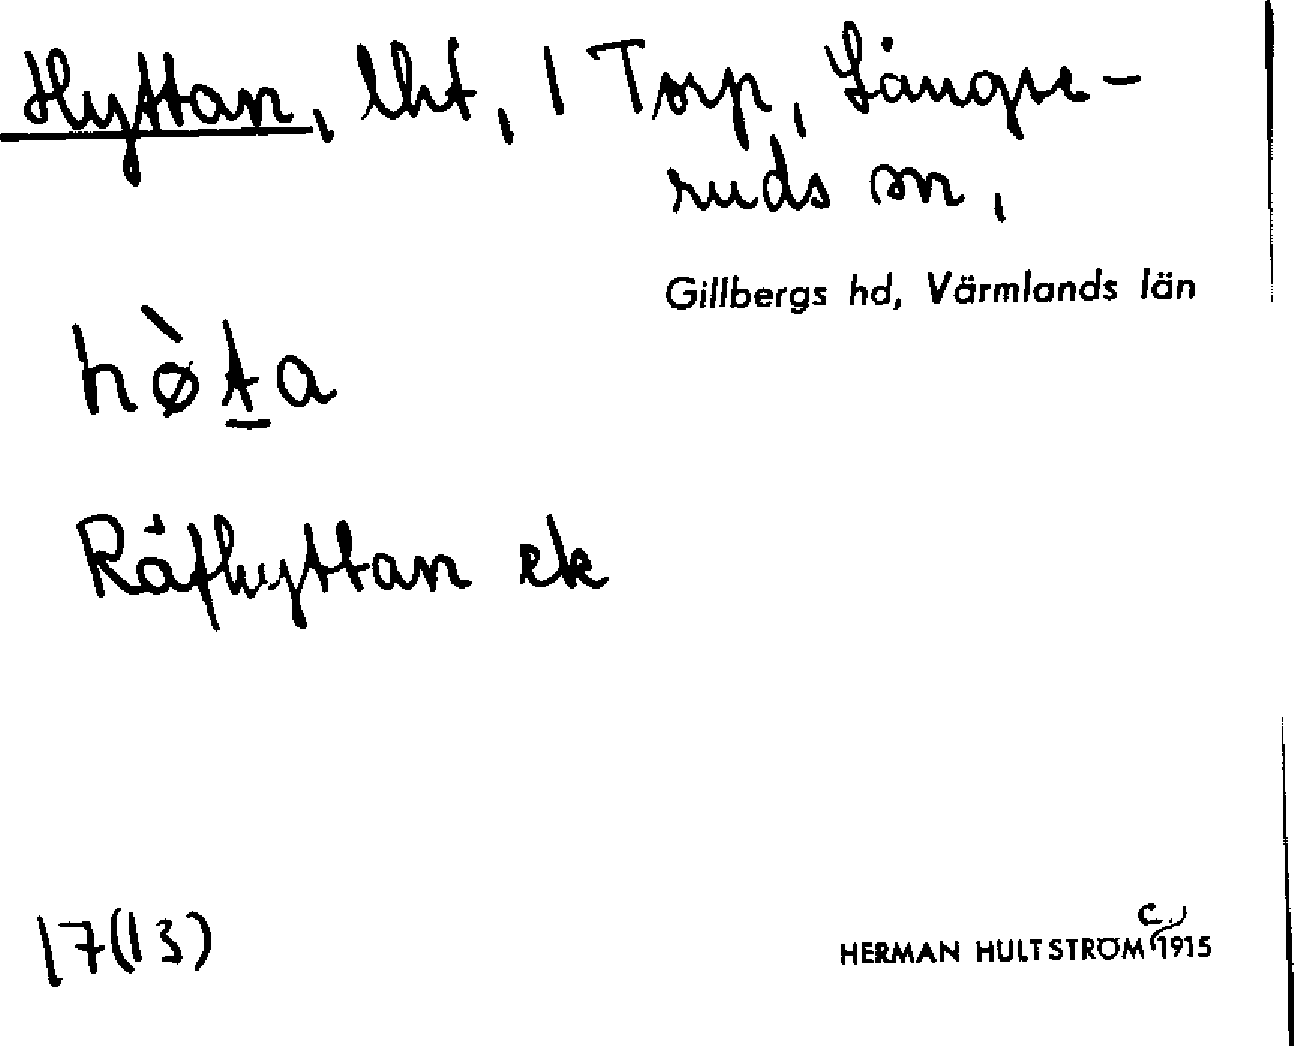 Hyttan, lht, 1 Torp, Långse-
ruds sn,
Gillbergs hd, Värmlands län
hø̀t̲a
Räfhyttan ek
17(13)
HERMAN HULTSTRÖM c. 1915